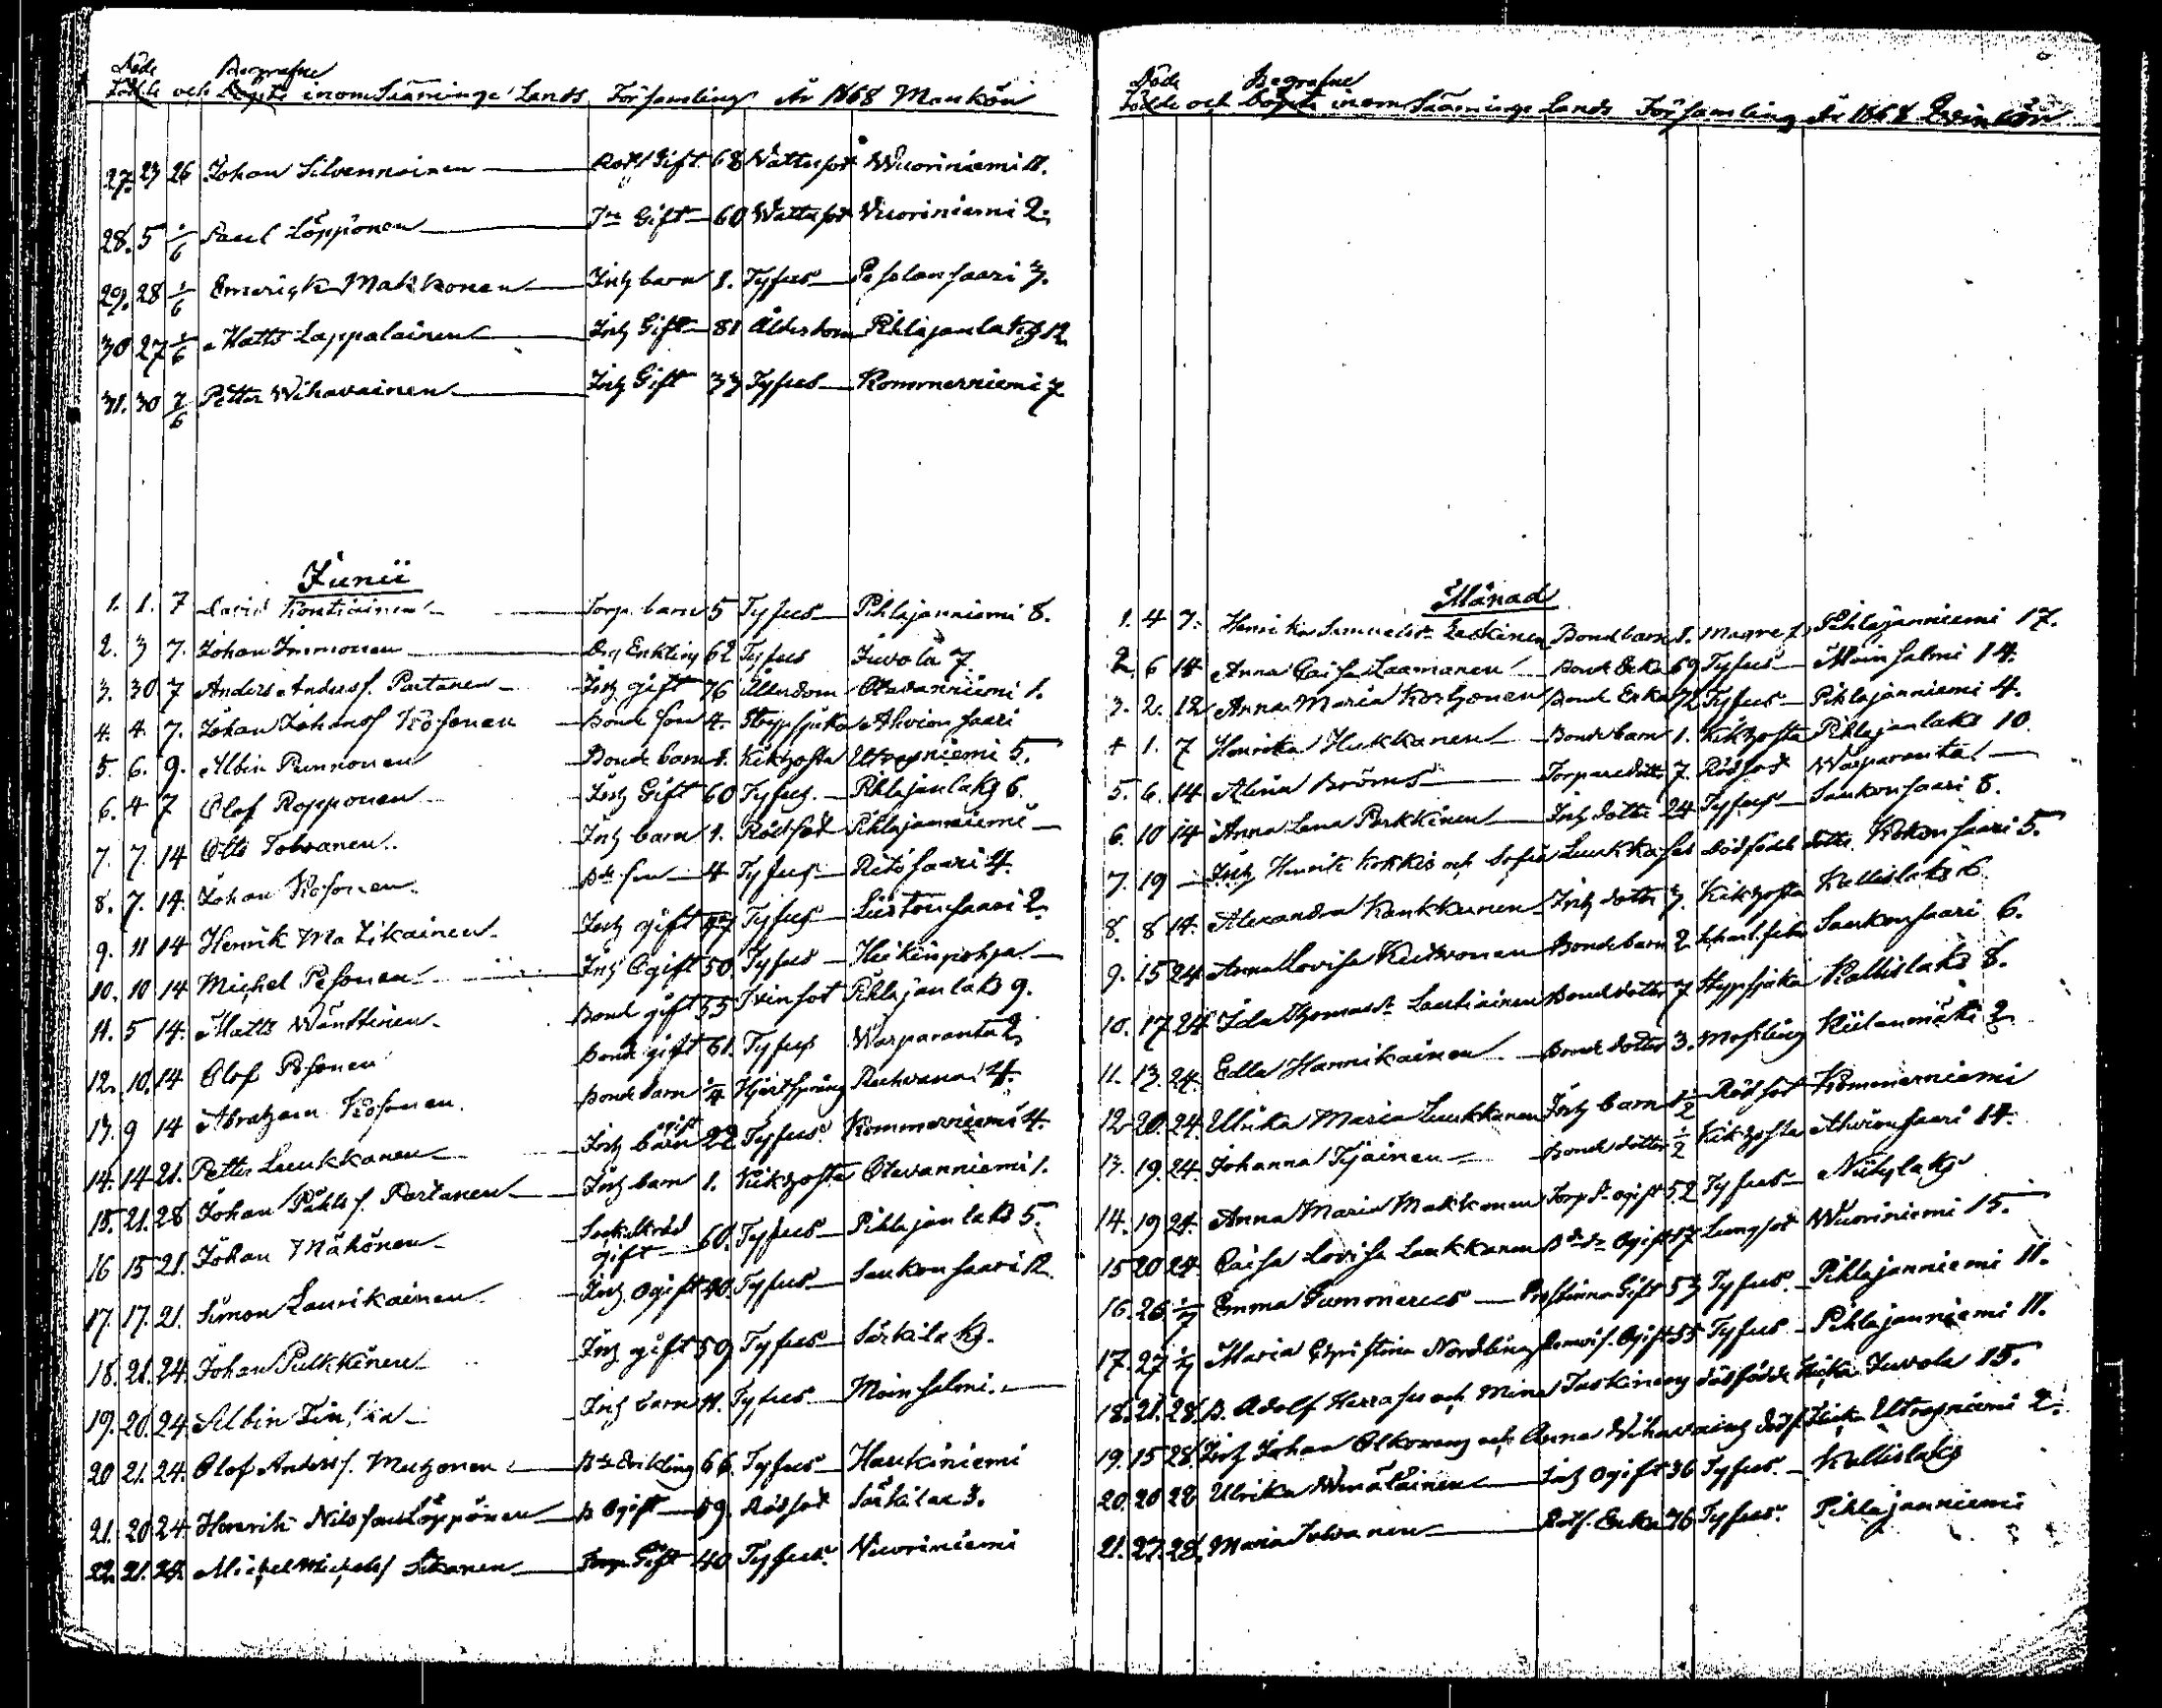 Döde Begrafne
Födde och Döpte inom Sääminge Lands Församling År 1868 Mankön
27. 23 26 Johan Silvennoinen Rotf Gift 68 Wattusot Wuoriniemi 11.
28. 5 1/6 Paul Löppönen Gift 60 Wattusot Wuoriniemi 2.
29. 28 1/6 Emerick Makkonen Inh barn 1. Tyfus Pesolansaari 3.
30 27 1/6 Matts Lappalainen Inh Gift 81 Ålderdom Pihlajanlaks 12
31. 30 7/6 Petter Wihavainen Inh Gift 33 Tyfus Kommerniemi 7
Junii
1. 1. 7 David Kontiainen Torp. barn 5 Tyfus Pihlajanniemi 8.
2. 3 7. Johan Immonen Enkling 62 Tyfus Juvola 7.
3. 30. 7 Anders Anderss. Partanen Inh gift 76 Ålderdom Otavanniemi 1.
4. 4. 7. Johan Johanss Kosonen Bonde son 4. Strypsjuka Ahvionsaari
5. 6. 9. Albin Punnonen Bonde barn 1. Kikhosta Utrasniemi 5.
6. 4 7 Olof Ropponen Inh Gift 60 Tyfus. Pihlajanlaks 6.
7. 7. 14 Otto Tolvanen Inh barn 1. Rödsot Pihlajanniemi
8. 7. 14. Johan Kosonen Bde son 4 Tyfus Ritosaari 4.
9. 11 14 Henrik Matikainen Inh gift Tyfus Liistonsaari 2.
10. 10 14 Michel Pesonen Inh Ogift 50. Tyfus Heikinpohja
11. 5 14. Matts Wänttinen Bond gift 55 Tvinsot Pihlajanlaks 9.
12. 10. 14 Olof Pesonen Bonde gift 61. Tyfus Warparanta 2.
13. 9 14 Abraham Kosonen Bonde barn 1/4 Hjertsprång Ruhvana 4.
14. 14 21. Petter Luukkanen Inh barn ogift 22 Tyfus. Kommerniemi 4.
15. 21. 28 Johan Påhls s. Partanen Inh barn 1. Kikhosta Otavanniemi 1.
16 15 21. Johan Mähönen gift 60. Tyfus Pihlajanlaks 5.
17. 17. 21. Simon Laurikainen Inh Ogift 40. Tyfus Saukonsaari 12.
18. 21. 24. Johan Pulkkinen Inh gift 59 Tyfus Särkilaks.
19. 20. 24. Albin Inh barn 11. Tyfus Moinsalmi.
20 21. 24. Olof Anderss. Muhonen Bde Enkling 66. Tyfus Haukiniemi
21. 20 24. Henrik Nilsson Löppönen B Ogift 59. Rödsot Särkilax 3.
22. 21. 24. Michel Michelss Torp. Gift 40 Tyfus. Wuoriniemi
Döde Begrafne
Födde och Döpte inom Sääminge Lands Församling År 1868 Qvinkön
Månad
1. 4 7. Henrika Samuelsdr Laukinen Bondebarn 1. Pihlajanniemi 17.
2. 6 14 Anna Caisa Laamanen Bonde Enka 69 Tyfus Moinsalmi 14.
3. 2. 12 Anna Maria Korhonen Bonde Enka 72 Tyfus Pihlajanniemi 4.
4 1. 7 Henrika Hukkanen Bonde barn 1. Kikhosta Pihlajanlaks 10.
5. 6. 14 Alina Broms Torparedotter 7. Rödsot Warparanta
6. 10 14 Anna Lena Parkkinen Inh dotter 24 Tyfus Saukonsaari 8.
7. 19 Inh Henrik Kokkis och Sofia Luukkases Dödfödde dotter Kokonsaari 5.
8. 8 14. Alexandra Kankkunen Inh dotter 3. Kikhosta Kallislaks 6.
9. 15 24. Anna Lovisa Kurvonen Bondebarn 2 Scharl. feber Saukonsaari 6.
10. 17 24 Ida Thomasdr Lautiainen Bonde dotter 7 Strypsjuka Kallislaks 8.
11. 13. 24. Edla Hannikainen Bonde dotter 3. Messling Kiilanmäki 2.
12 20. 24. Ulrika Maria Luukkanen Inh barn 1/2 Rödsot Kommerniemi
13. 19. 24. Johanna Tyjäinen Bonde dotter 1/2 Kikhosta Ahvionsaari 14.
14. 19 24. Anna Maria Makkonen Torp dr ogift 52 Tyfus Niittylaks
15 20 24. Caisa Lovisa Laukkanen Ogift 17 Lungsot Wuoriniemi 15.
16. 26. 1/7 Emma Gummerus Prostinna Gift 53 Tyfus. Pihlajanniemi 11.
17. 27 1/7 Maria Christina Nordling Demois. Ogift 55 Tyfus Pihlajanniemi 11.
18. 21. 28. B. Adolf och Mina Taskinens dödfödde flicka Juvola 15.
19. 15 28. Inh Johan Olkonens och Anna Wihavainens dödf. flicka Utrasniemi 2.
20. 20 28 Ulrika Inh Ogift 36 Tyfus. Kallislaks
21. 27. 28. Maria Tolvanen Rotf. Enka 76 Tyfus. Pihlajanniemi